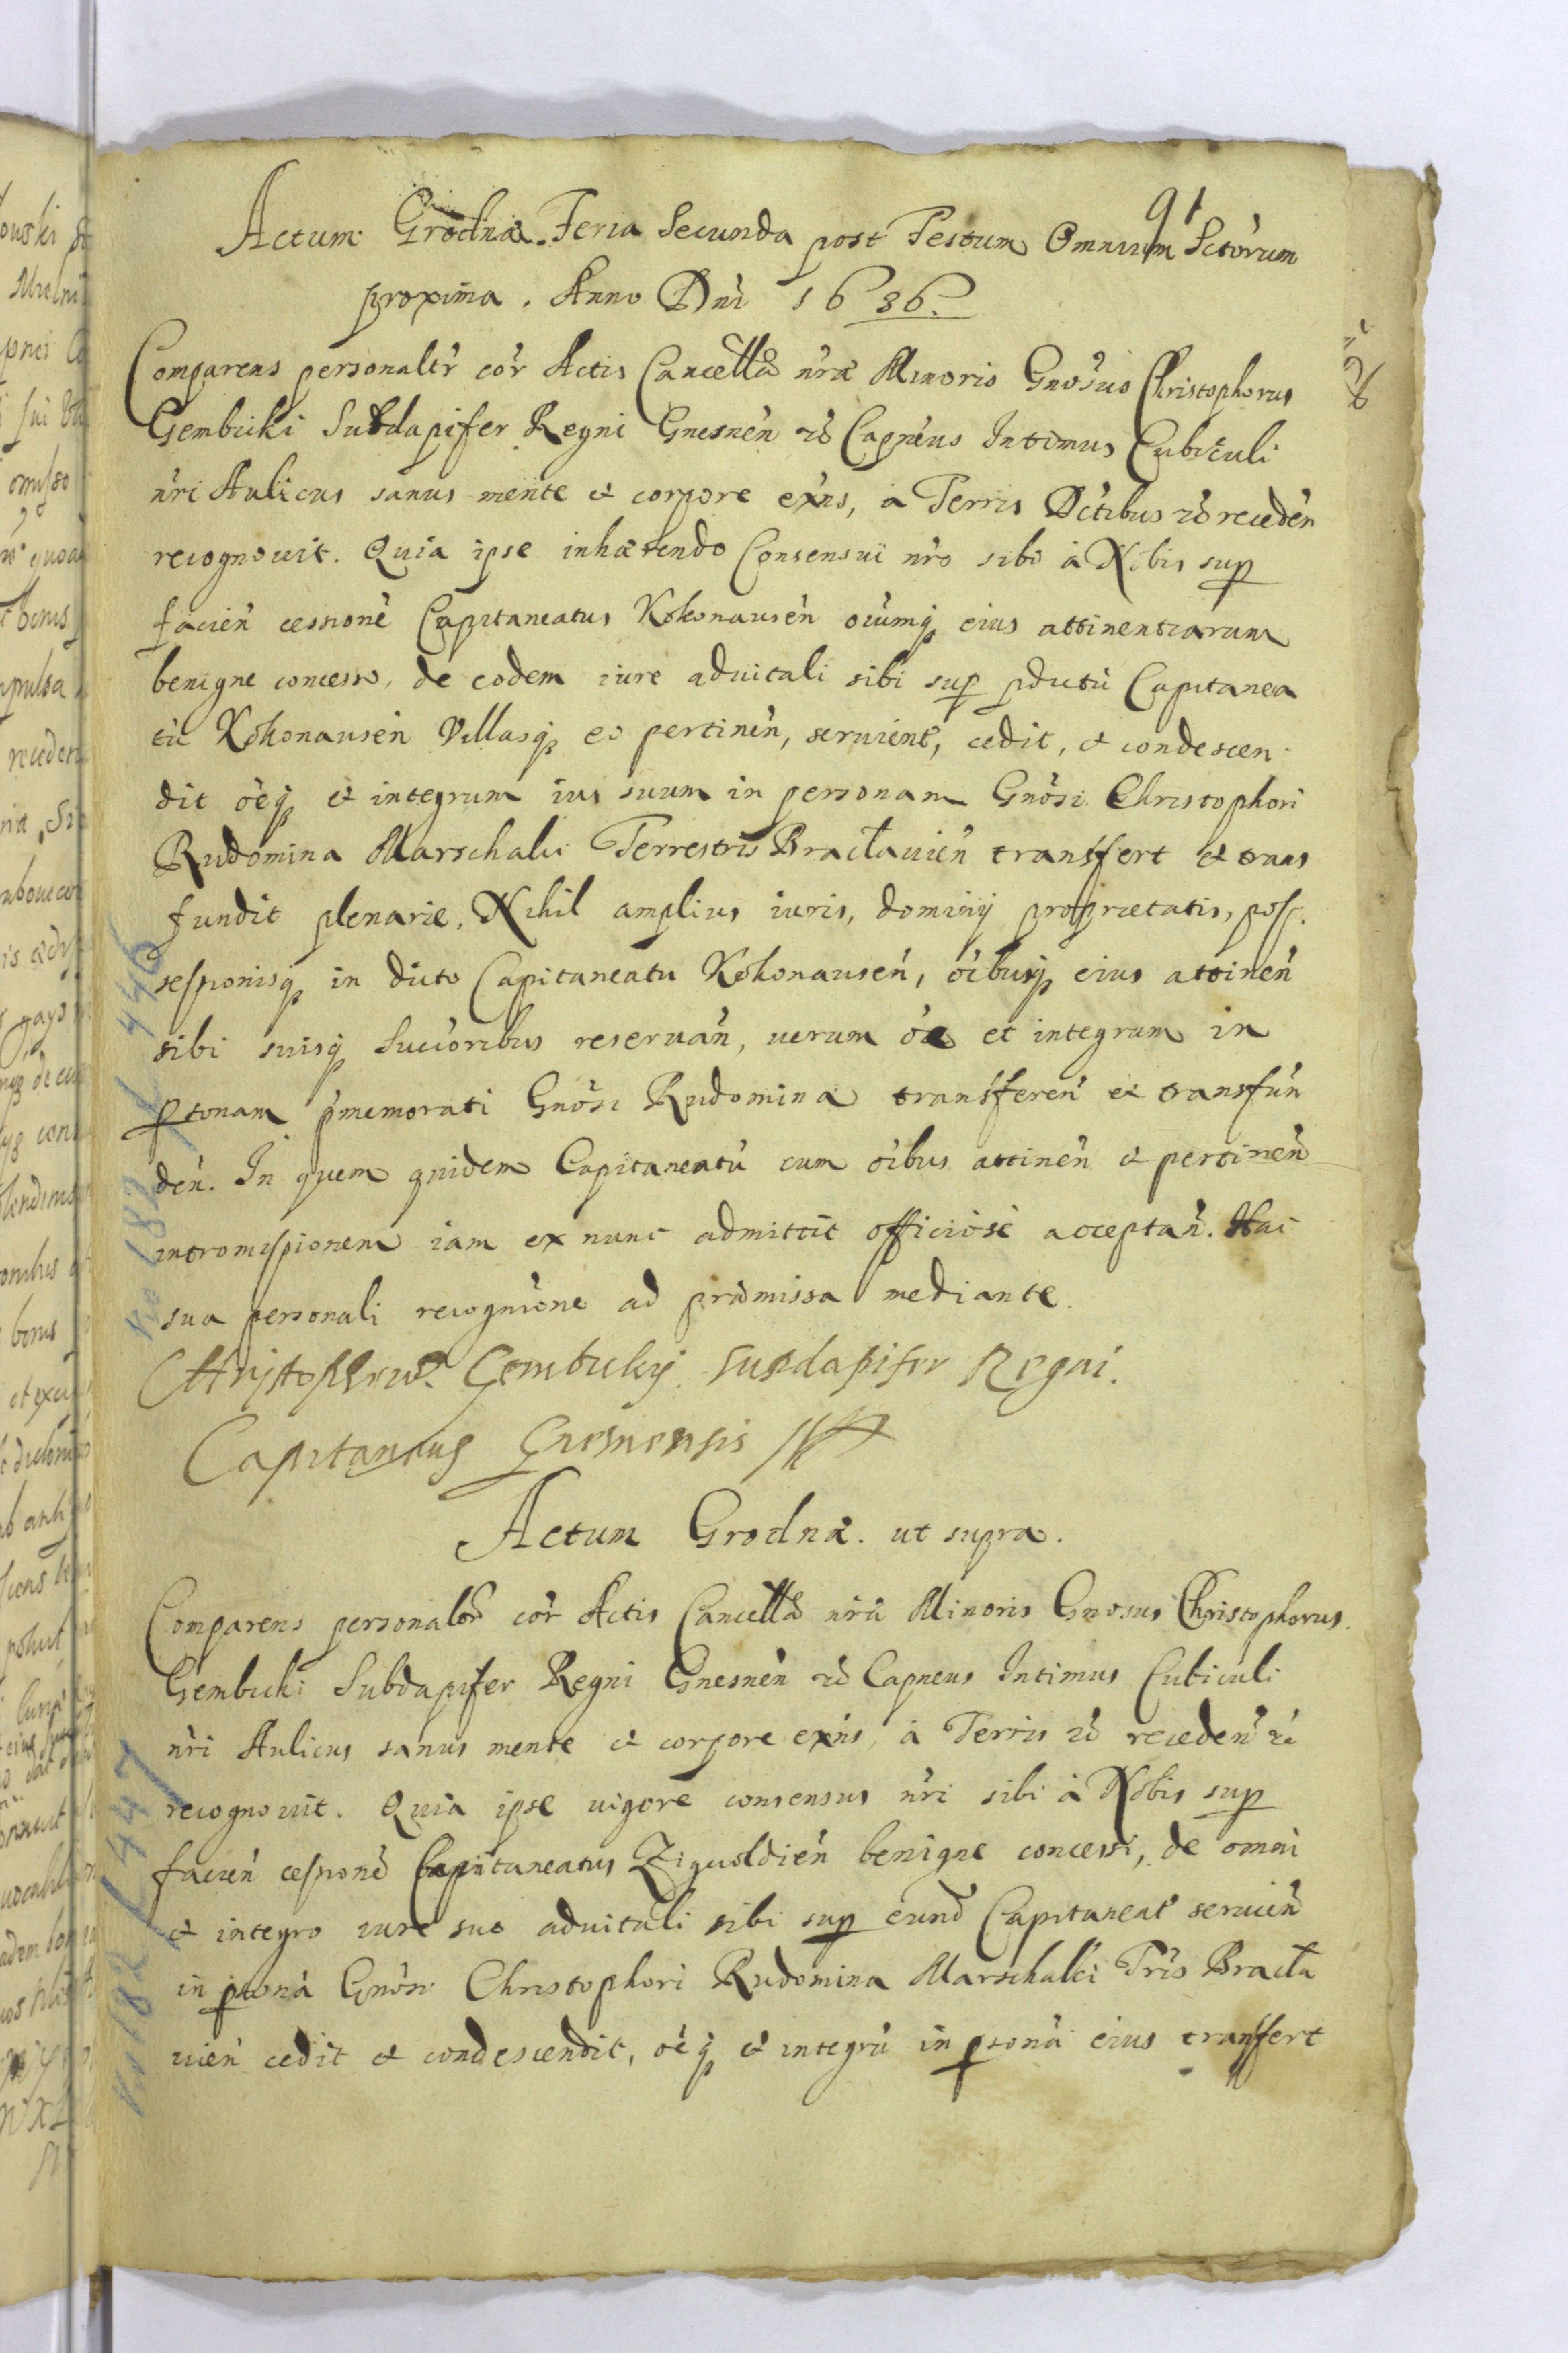 91
Actum Grodnæ. Feria Secunda post Festum Omnium Sctorum
proxima. Anno Dni 1636.
Comparens personaltr cor Actis Cancella nræ Minoris Gnosus Christophorus
Gembicki Subdapifer Regni Gnesnen Capneus Intimus Cubiculi
nri Aulicus sanus mente et corpore exns, à Terris Dctibus receden
recognovit. Quia ipse inhærendo Consensui nro sibi à Nobis sup
facien cessione Capitaneatus Kokonausen oiumq eius attinentiarum
benigne concesso, de eodem iure aduitali sibi sup pdictu Capitanea
tu Kokonausen Villasq eo pertinen, seruient, cedit, et condescen
dit oeq et integrum ius suum in personam Gnosi Christophori
Rudomina Marschalci Terrestris Bracłauien transfert et trans
fundit plenarie, Nihil amplius iuris, dominij proprietatis, pos
sessionisq in dicto Capitaneatu Kokonausen, oibusq eius attinen
sibi suisq Succoribus reseruan, uerum oe et integrum in
psonam pmemorati Gnosi Rudomina transferen et transfun
den. In quem quidem Capitaneatu cum oibus attinen et pertinen
intromissionem iam ex nunc admittit officiose acceptan. Hac
sua personali recognione ad præmissa mediante.
Christophorus Gembicky Supdapifer Regni.
Capitaneus Gnesnensis
Actum Grodnæ. ut supra.
Comparens personalr cor Actis Cancella nræ Minoris Gnosus Christophorus
Gembicki Subdapifer Regni Gnesnen Capneus Intimus Cubiculi
nri Aulicus sanus mente et corpore exns, à Terris receden
recognovit. Quia ipse uigore consensus nri sibi à Nobis sup
facien cessione Capitaneatus Ziguoldien benigne concessi, de omni
et integro iure suo aduitali sibi sup eund Capitaneat seruien
in psona Gnosi Christophori Rudomina Marschalci Tris Bracła
uien cedit et condescendit, oeq et integru in psona eius transfert
182 446
182 447